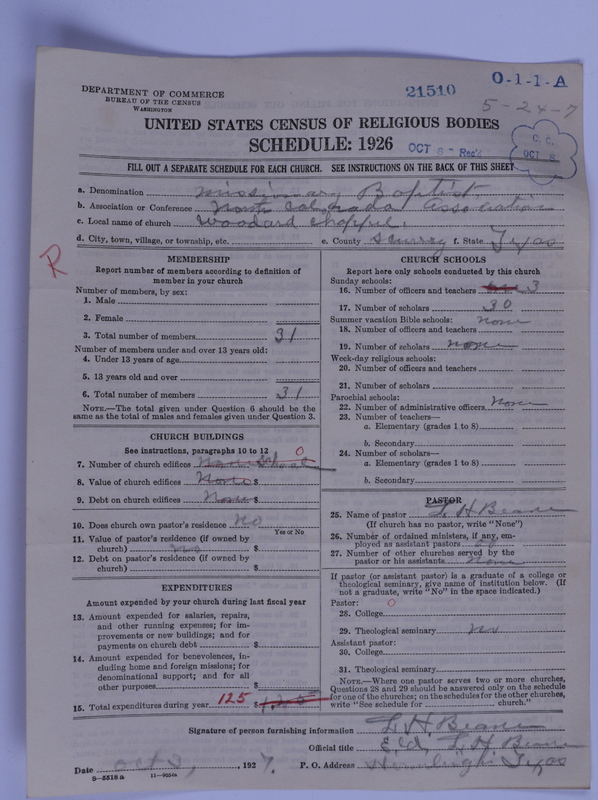 DEPARTMENT OF COMMERCE
BUREAU OF THE CENSUS
WASHINGTON
21510
O-1-1-A
5-24-7
UNITED STATES CENSUS OF RELIGIOUS BODIES
SCHEDULE: 1926
OCT 8 - Rec'd
C. C.
OCT 8
FILL OUT A SEPARATE SCHEDULE FOR EACH CHURCH. SEE INSTRUCTIONS ON THE BACK OF THIS SHEET
a. Denomination Missionary Baptist
b. Association or Conference North Colorado Association
c. Local name of church Woodard chappel.
d. City, town, village, or township, etc. e. County Scurry f. State Texas
R
MEMBERSHIP
Report number of members according to definition of
member in your church
Number of members, by sex:
1. Male
2. Female
3. Total number of members 31
Number of members under and over 13 years old:
4. Under 13 years of age
5. 13 years old and over
6. Total number of members 31
NOTE.—The total given under Question 6 should be the
same as the total of males and females given under Question 3.
CHURCH BUILDINGS
See instructions, paragraphs 10 to 12 0
7. Number of church edifices
8. Value of church edifices None $
9. Debt on church edifices None $
10. Does church own pastor's residence No
Yes or No
11. Value of pastor's residence (if owned by
church) no $
12. Debt on pastor's residence (if owned by
church) $
EXPENDITURES
Amount expended by your church during last fiscal year
13. Amount expended for salaries, repairs,
and other running expenses; for im-
provements or new buildings; and for
payments on church debt $
14. Amount expended for benevolences, in-
cluding home and foreign missions; for
denominational support; and for all
other purposes $
15. Total expenditures during year 125 $ 125
CHURCH SCHOOLS
Report here only schools conducted by this church
Sunday schools:
16. Number of officers and teachers 3
17. Number of scholars 30
Summer vacation Bible schools: none
18. Number of officers and teachers
19. Number of scholars none
Week-day religious schools:
20. Number of officers and teachers
21. Number of scholars
Parochial schools:
22. Number of administrative officers none
23. Number of teachers—
a. Elementary (grades 1 to 8)
b. Secondary
24. Number of scholars—
a. Elementary (grades 1 to 8)
b. Secondary
PASTOR
25. Name of pastor L. H. Beane
(If church has no pastor, write "None")
26. Number of ordained ministers, if any, em-
ployed as assistant pastors
27. Number of other churches served by the
pastor or his assistants None
If pastor (or assistant pastor) is a graduate of a college or
theological seminary, give name of institution below. (If
not a graduate, write "No" in the space indicated.)
Pastor: 0
28. College
29. Theological seminary No
Assistant pastor:
30. College
31. Theological seminary
NOTE.—Where one pastor serves two or more churches,
Questions 28 and 29 should be answered only on the schedule
for one of the churches; on the schedules for the other churches,
write "See schedule for church."
Signature of person furnishing information L. H. Beane
Official title Eld, L. H. Beane
Date oct 2, , 1927. P. O. Address Hermleigh Texas
8-5518 a 11-9034a